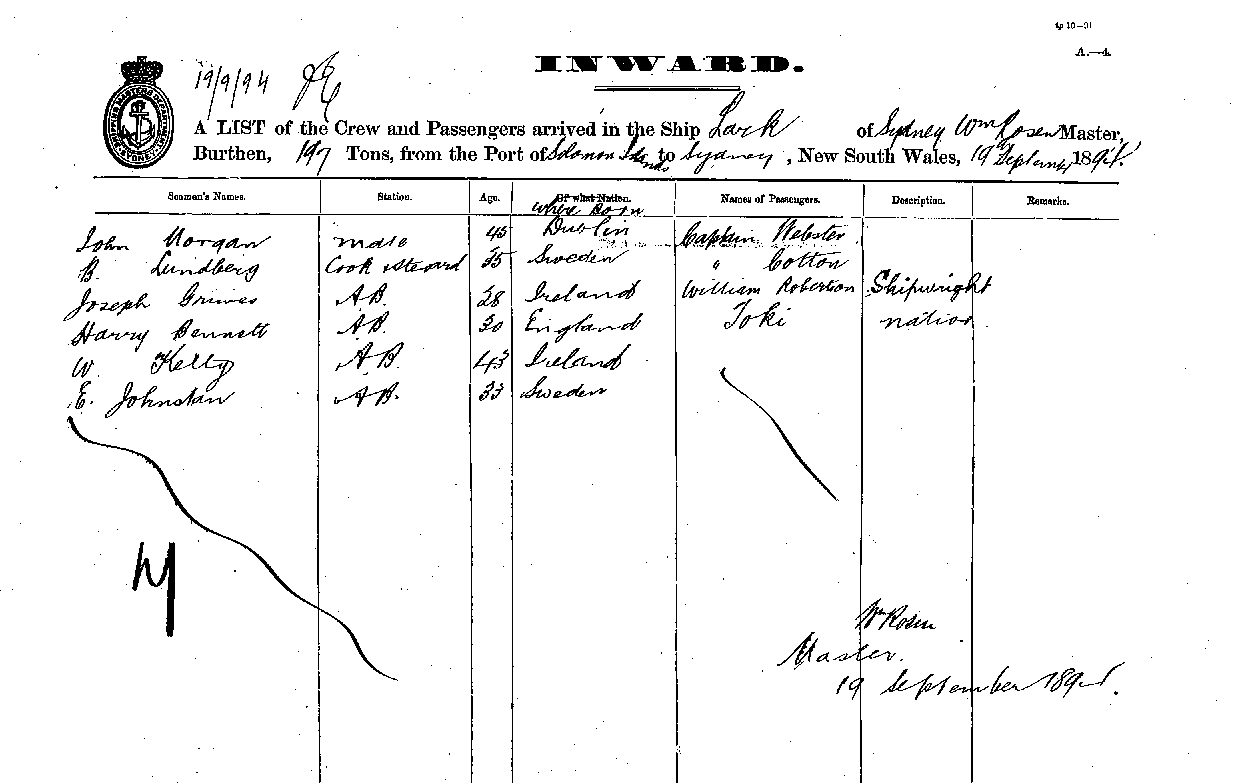 4p 10—91
A.—4.
INWARD.
19/9/94
A LIST of the Crew and Passengers arrived in the Ship Lark of Sydney Wm Rosen Master,
Burthen, 197 Tons, from the Port of Solomon Islands to Sydney, New South Wales, 19 September 1894.
Seamen's Names. Station. Age. Of what Nation. Names of Passengers. Description. Remarks.
where Born
John Morgan mate 45 Dublin Captain Webster
B. Lundberg Cook & Steward 35 Sweden " Cotton
Joseph Grimes A B. 28 Ireland William Robertson Shipwright
Harry Bennett A B. 30 England Toki native
W. Kelly A B. 43 Ireland
E. Johnstan A B. 33 Sweden
Wm Rosen
Master.
19 September 1894.